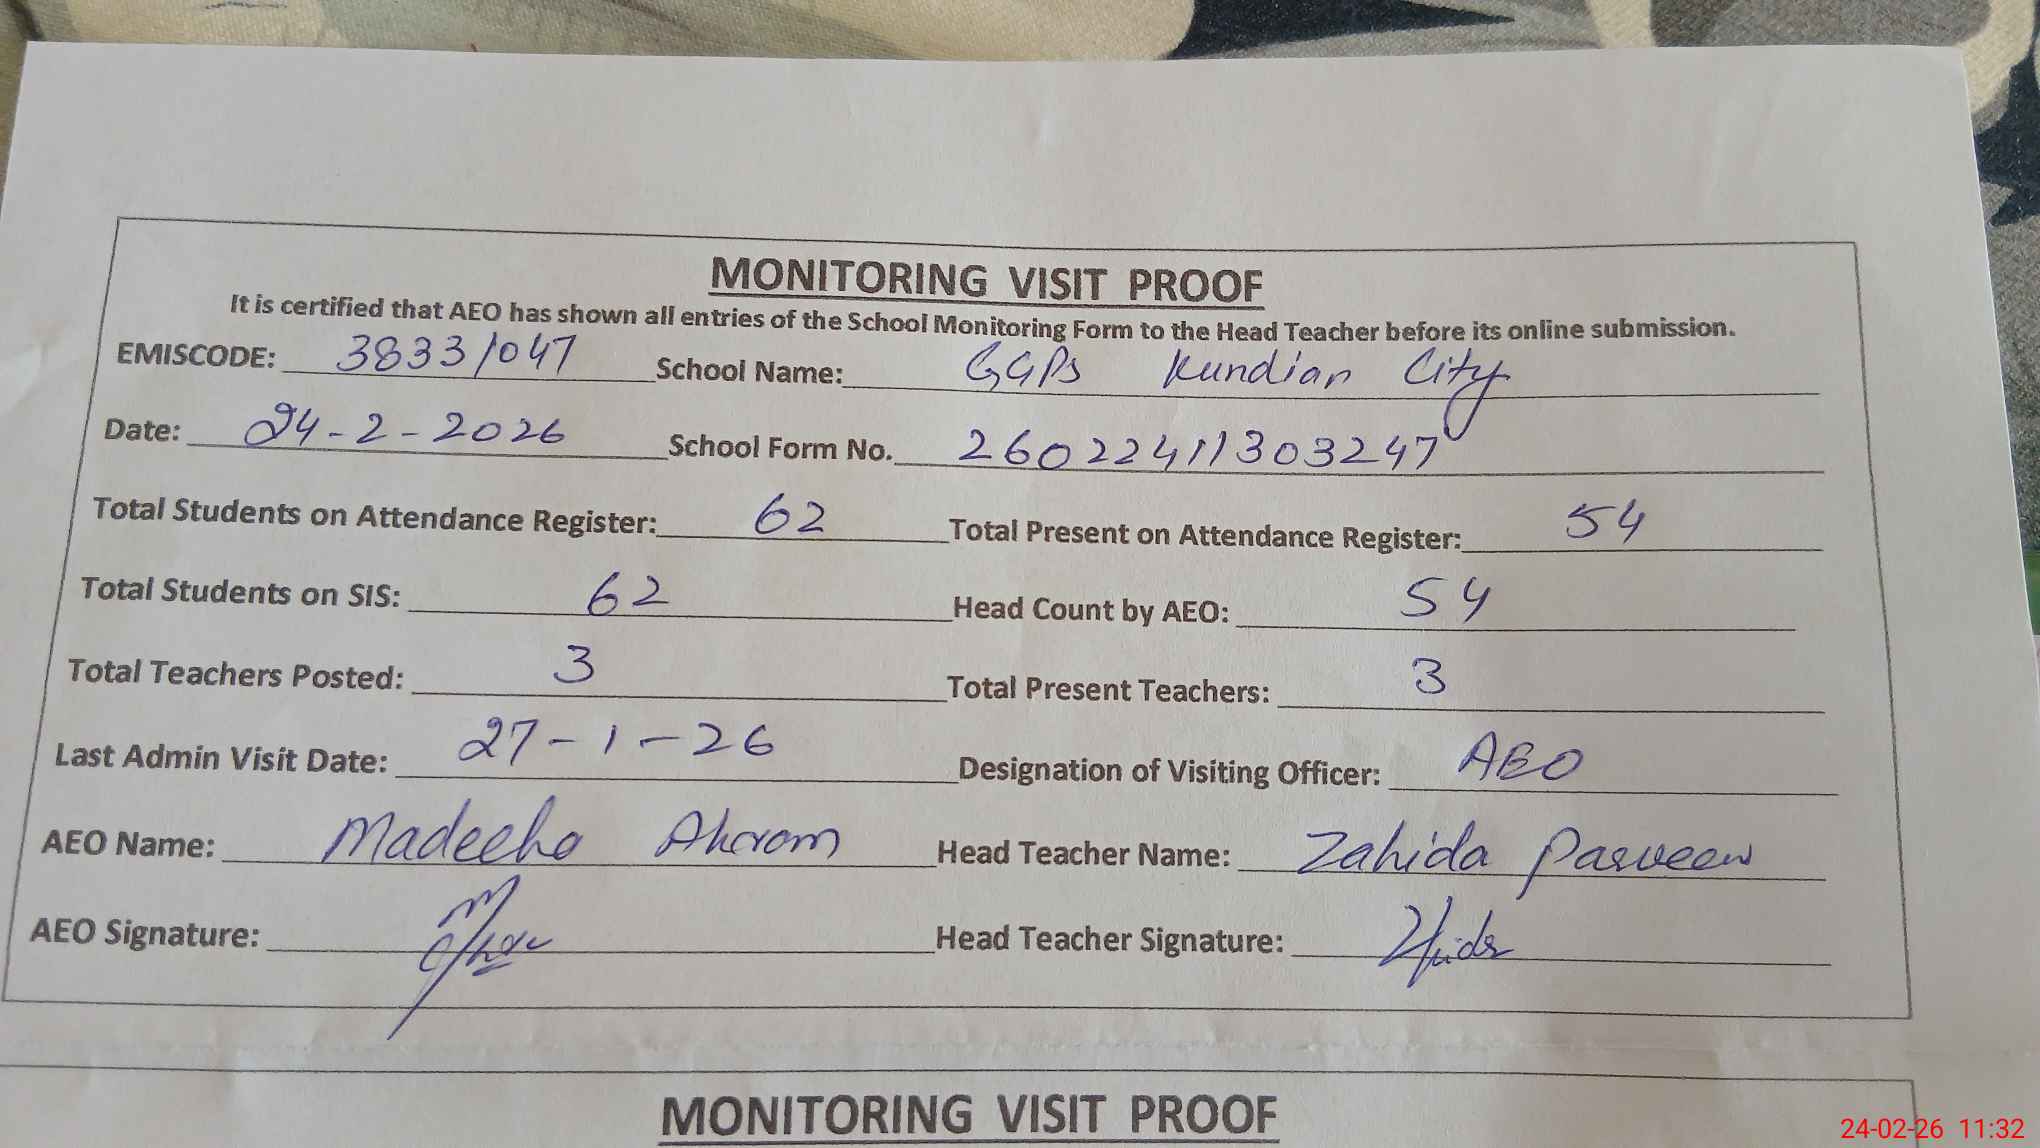 MONITORING VISIT PROOF
It is certified that AEO has shown all entries of the School Monitoring Form to the Head Teacher before its online submission.
EMISCODE: 38331047 School Name: GGPS Kundian City
Date: 24-2-2026 School Form No. 26022411303247
Total Students on Attendance Register: 62 Total Present on Attendance Register: 54
Total Students on SIS: 62 Head Count by AEO: 54
Total Teachers Posted: 3 Total Present Teachers: 3
Last Admin Visit Date: 27-1-26 Designation of Visiting Officer: AEO
AEO Name: Madeeha Akram Head Teacher Name: Zahida Parveen
AEO Signature: Head Teacher Signature:
MONITORING VISIT PROOF
24-02-26 11:32